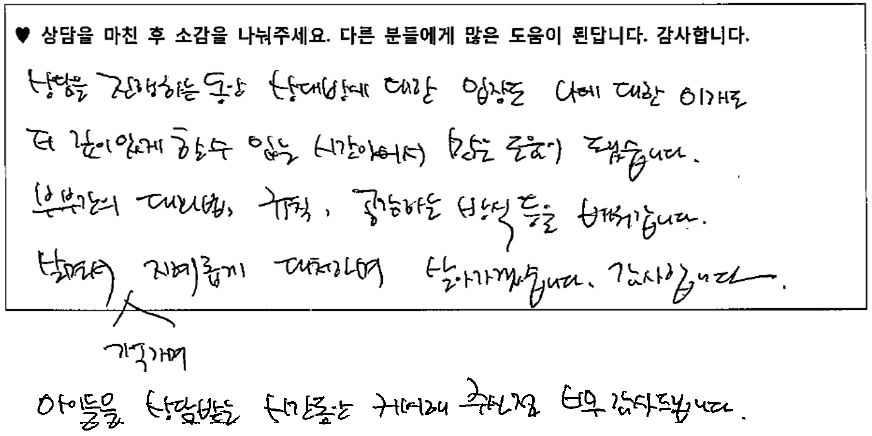 ♥ 상담을 마친 후 소감을 나눠주세요. 다른 분들에게 많은 도움이 된답니다. 감사합니다.
상담을 진행하는 동안 상대방에 대한 입장도 나에 대한 이해도
더 깊이있게 할수 있는 시간이어서 많은 도움이 됐습니다.
부부간의 대화법, 규칙, 공감하는 방식 등을 배워갑니다.
살면서 지혜롭게 대처하며 살아가겠습니다. 감사합니다.
기억하며
아이들을 상담받는 시간동안 케어해 주신점 너무 감사드립니다.